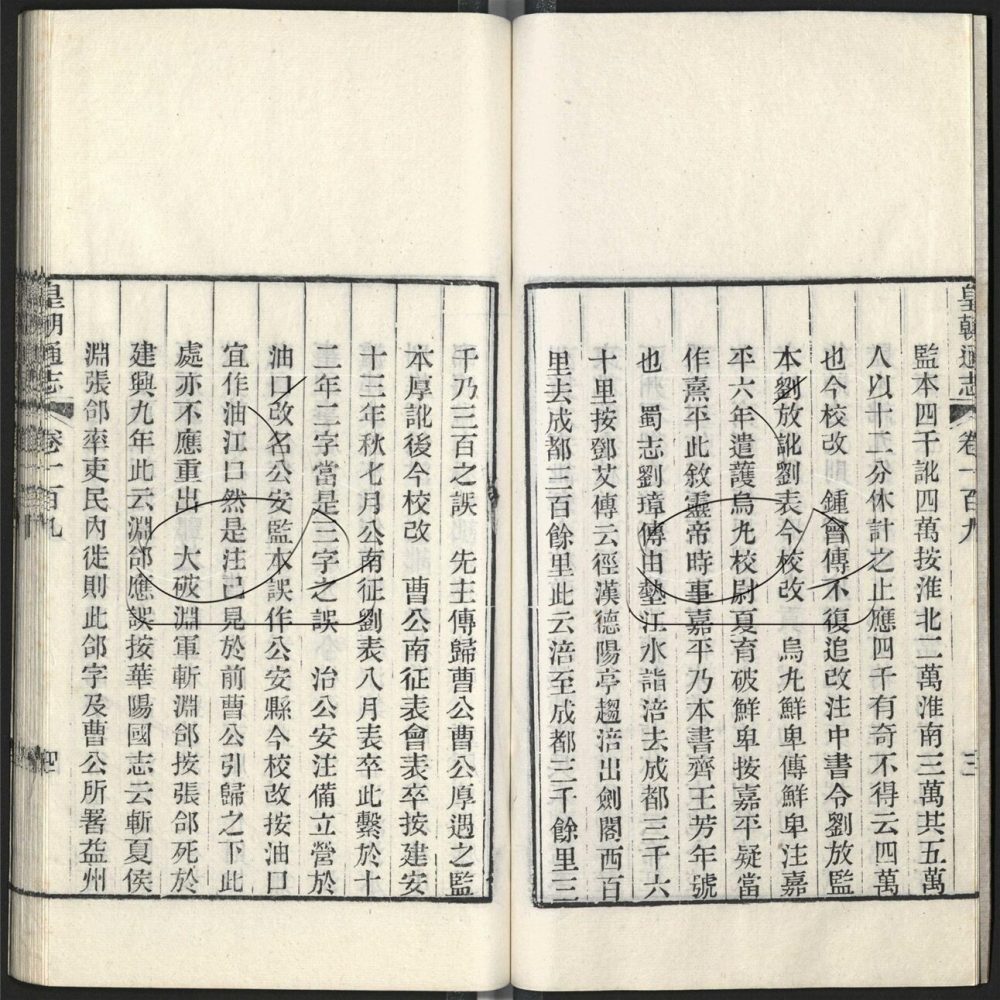 皇朝通志 卷一百九 三
監本四千訛四萬按淮北二萬淮南三萬其五萬
人以十二分休計之止應四千有奇不得云四萬
也今校改 鍾會傳不復追改注中書令劉放監
本劉放訛劉表今校改 烏丸鮮卑傳鮮卑注嘉
平六年遣護烏丸校尉夏育破鮮卑按嘉平疑當
作熹平此敘靈帝時事嘉平乃本書齊王芳年號
也 蜀志劉璋傳由墊江水詣涪去成都三千六
十里按鄧艾傳云徑漢德陽亭趨涪出劍閣西百
里去成都三百餘里此云涪至成都三千餘里三
千乃三百之誤 先主傳歸曹公曹公厚遇之監
本厚訛後今校改 曹公南征表會表卒按建安
十三年秋七月公南征劉表八月表卒此繫於十
二年二字當是三字之誤 治公安注備立營於
油口改名公安監本誤作公安縣今校改按油口
宜作油江口然是注已見於前曹公引歸之下此
處亦不應重出 大破淵軍斬淵郃按張郃死於
建興九年此云淵郃應誤按華陽國志云斬夏侯
淵張郃率吏民內徙則此郃字及曹公所署益州
皇朝通志 卷一百九 四